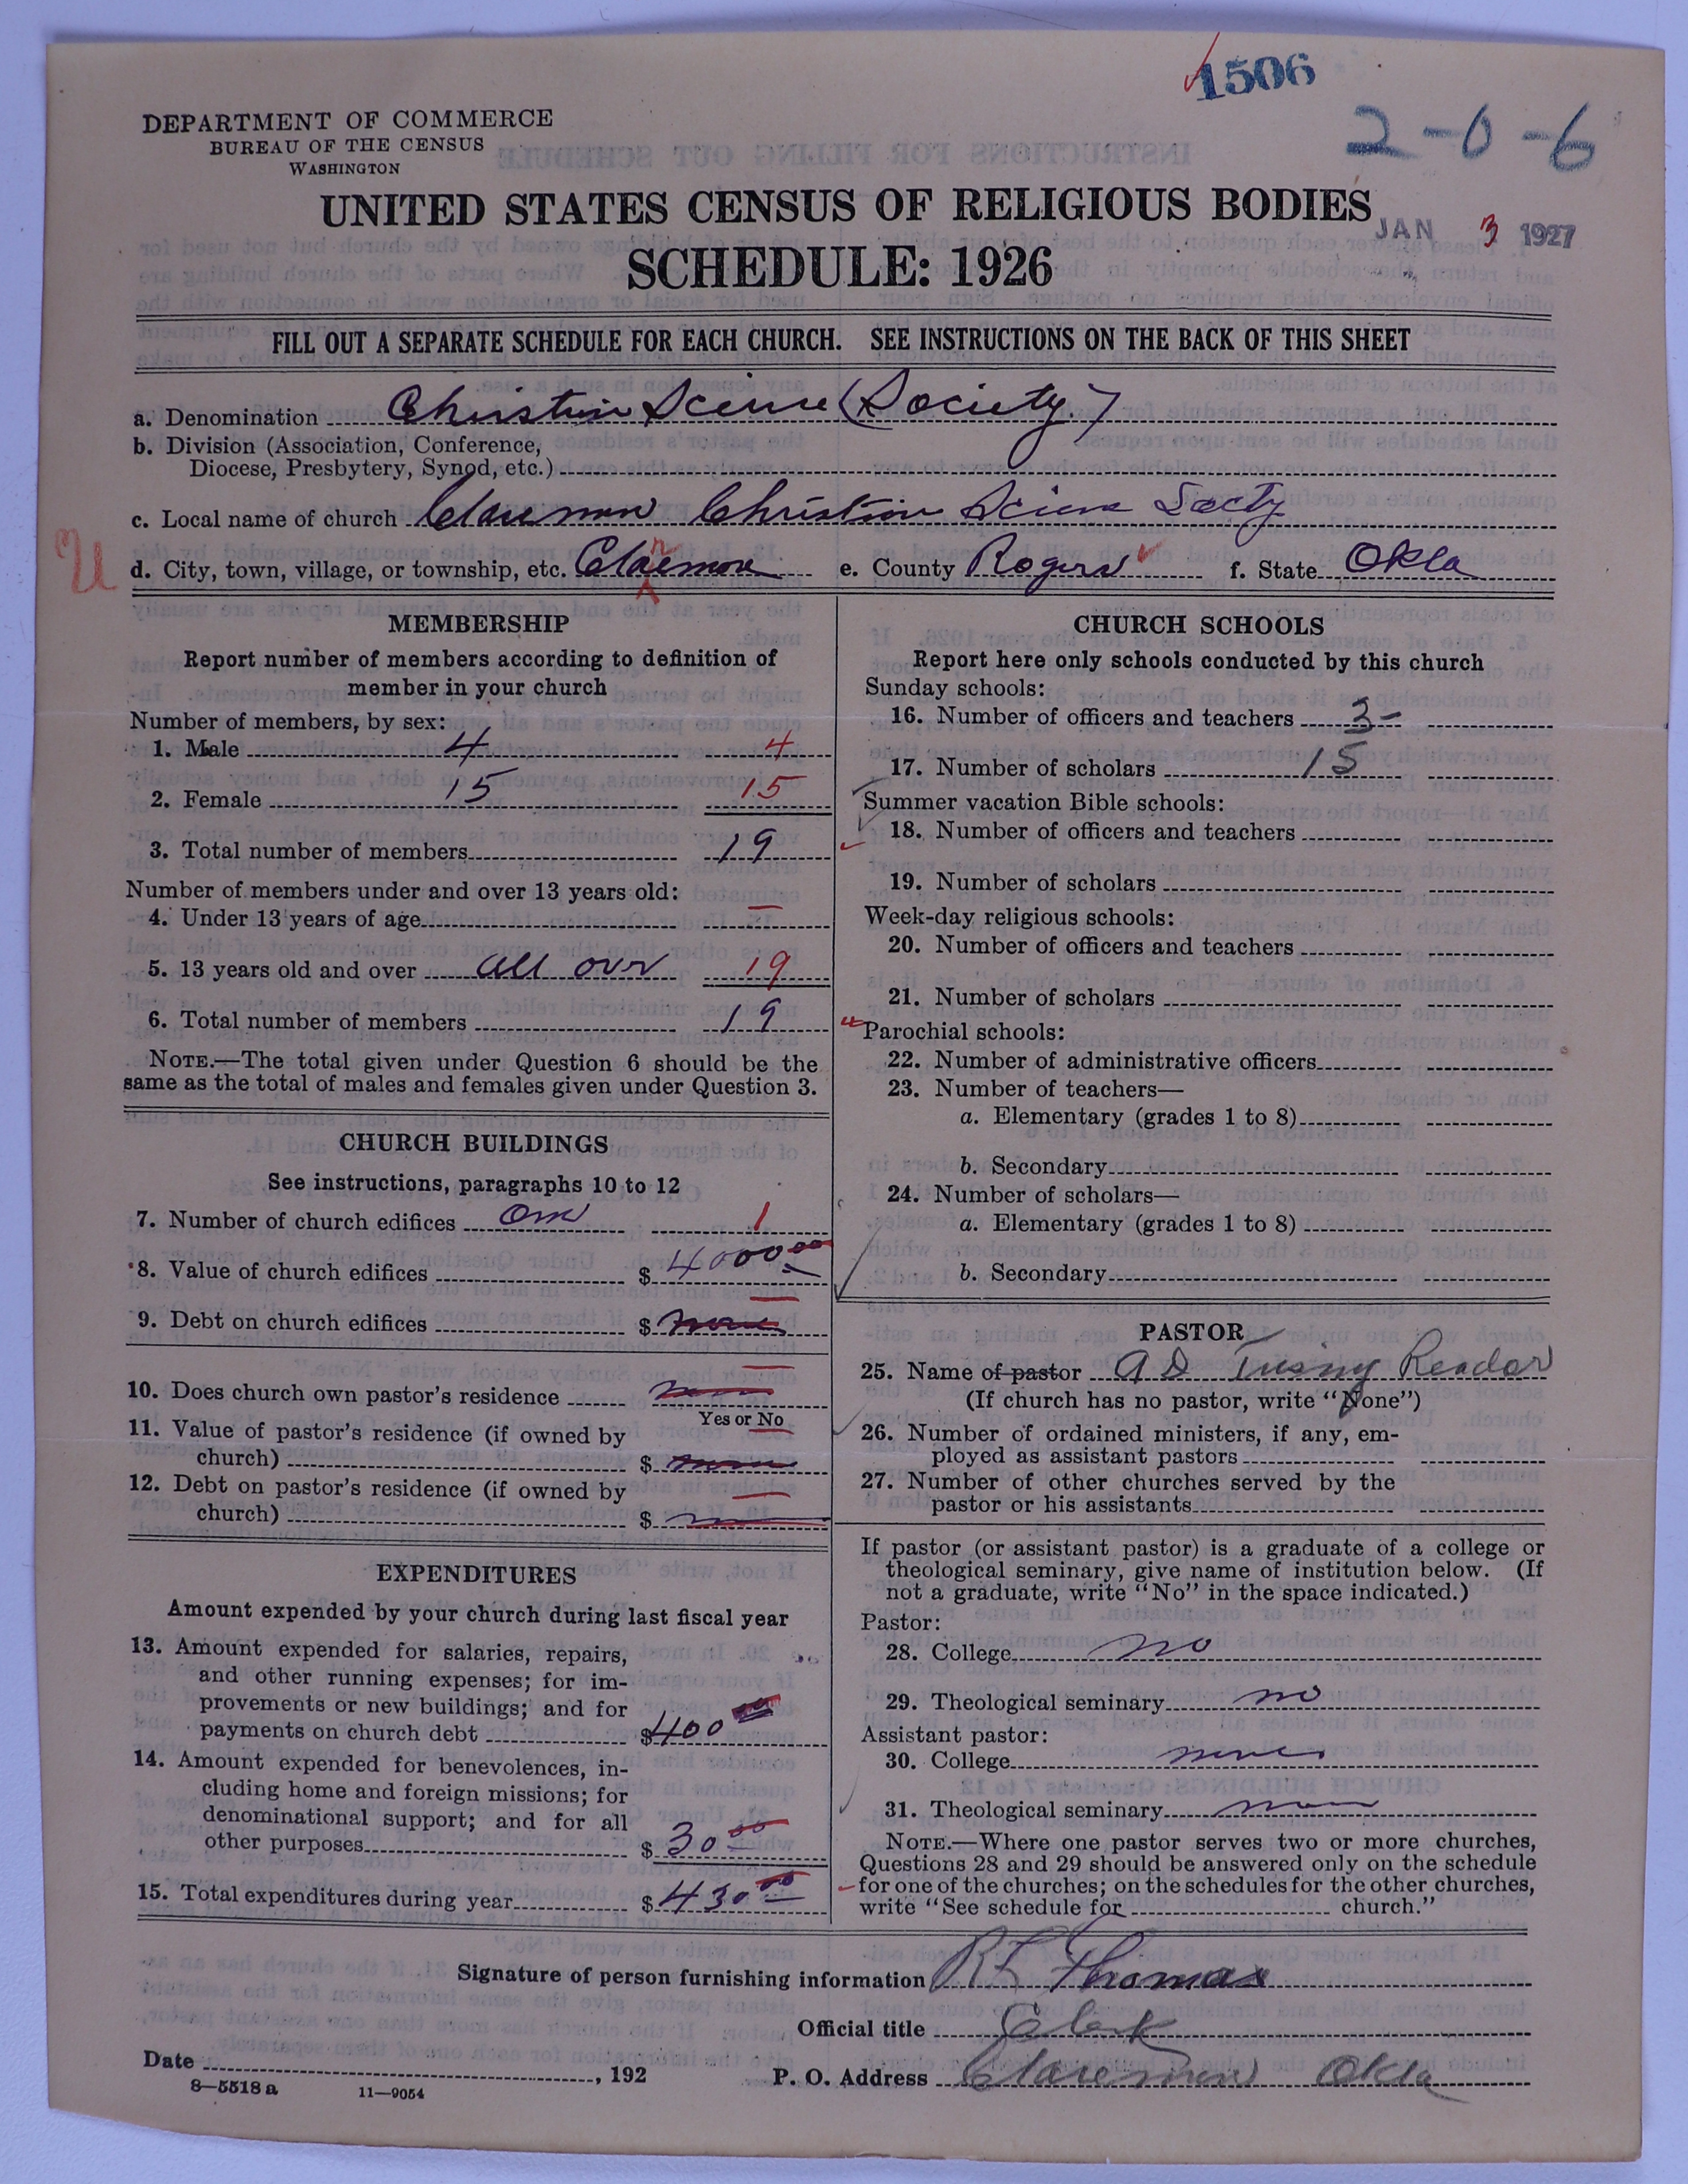 1506
2-0-6
DEPARTMENT OF COMMERCE
BUREAU OF THE CENSUS
WASHINGTON
UNITED STATES CENSUS OF RELIGIOUS BODIES
JAN 3 1927
SCHEDULE: 1926
FILL OUT A SEPARATE SCHEDULE FOR EACH CHURCH. SEE INSTRUCTIONS ON THE BACK OF THIS SHEET
a. Denomination Christian Science (Society.)
b. Division (Association, Conference,
Diocese, Presbytery, Synod, etc.)
c. Local name of church Claremore Christian Science Socty
U
d. City, town, village, or township, etc. Claremore e. County Rogers f. State Okla
MEMBERSHIP
Report number of members according to definition of
member in your church
Number of members, by sex:
1. Male 4 4
2. Female 15 15
3. Total number of members 19
Number of members under and over 13 years old:
4. Under 13 years of age —
5. 13 years old and over all over 19
6. Total number of members 19
NOTE.—The total given under Question 6 should be the
same as the total of males and females given under Question 3.
CHURCH BUILDINGS
See instructions, paragraphs 10 to 12
7. Number of church edifices One 1
8. Value of church edifices $ 4000 00
9. Debt on church edifices $ none
10. Does church own pastor's residence
Yes or No
11. Value of pastor's residence (if owned by
church) $ none
12. Debt on pastor's residence (if owned by
church) $
EXPENDITURES
Amount expended by your church during last fiscal year
13. Amount expended for salaries, repairs,
and other running expenses; for im-
provements or new buildings; and for
payments on church debt $ 400
14. Amount expended for benevolences, in-
cluding home and foreign missions; for
denominational support; and for all
other purposes $ 30 00
15. Total expenditures during year $ 430 00
CHURCH SCHOOLS
Report here only schools conducted by this church
Sunday schools:
16. Number of officers and teachers 3-
17. Number of scholars 15
Summer vacation Bible schools:
18. Number of officers and teachers
19. Number of scholars
Week-day religious schools:
20. Number of officers and teachers
21. Number of scholars
Parochial schools:
22. Number of administrative officers
23. Number of teachers—
a. Elementary (grades 1 to 8)
b. Secondary
24. Number of scholars—
a. Elementary (grades 1 to 8)
b. Secondary
PASTOR
25. Name of pastor A D Reador
(If church has no pastor, write "None")
26. Number of ordained ministers, if any, em-
ployed as assistant pastors
27. Number of other churches served by the
pastor or his assistants
If pastor (or assistant pastor) is a graduate of a college or
theological seminary, give name of institution below. (If
not a graduate, write "No" in the space indicated.)
Pastor:
28. College no
29. Theological seminary no
Assistant pastor:
30. College none
31. Theological seminary none
NOTE.—Where one pastor serves two or more churches,
Questions 28 and 29 should be answered only on the schedule
for one of the churches; on the schedules for the other churches,
write "See schedule for church."
Signature of person furnishing information R L Thomas
Official title Clerk
Date , 192 P. O. Address Claremore Okla
8—5518 a 11—9054